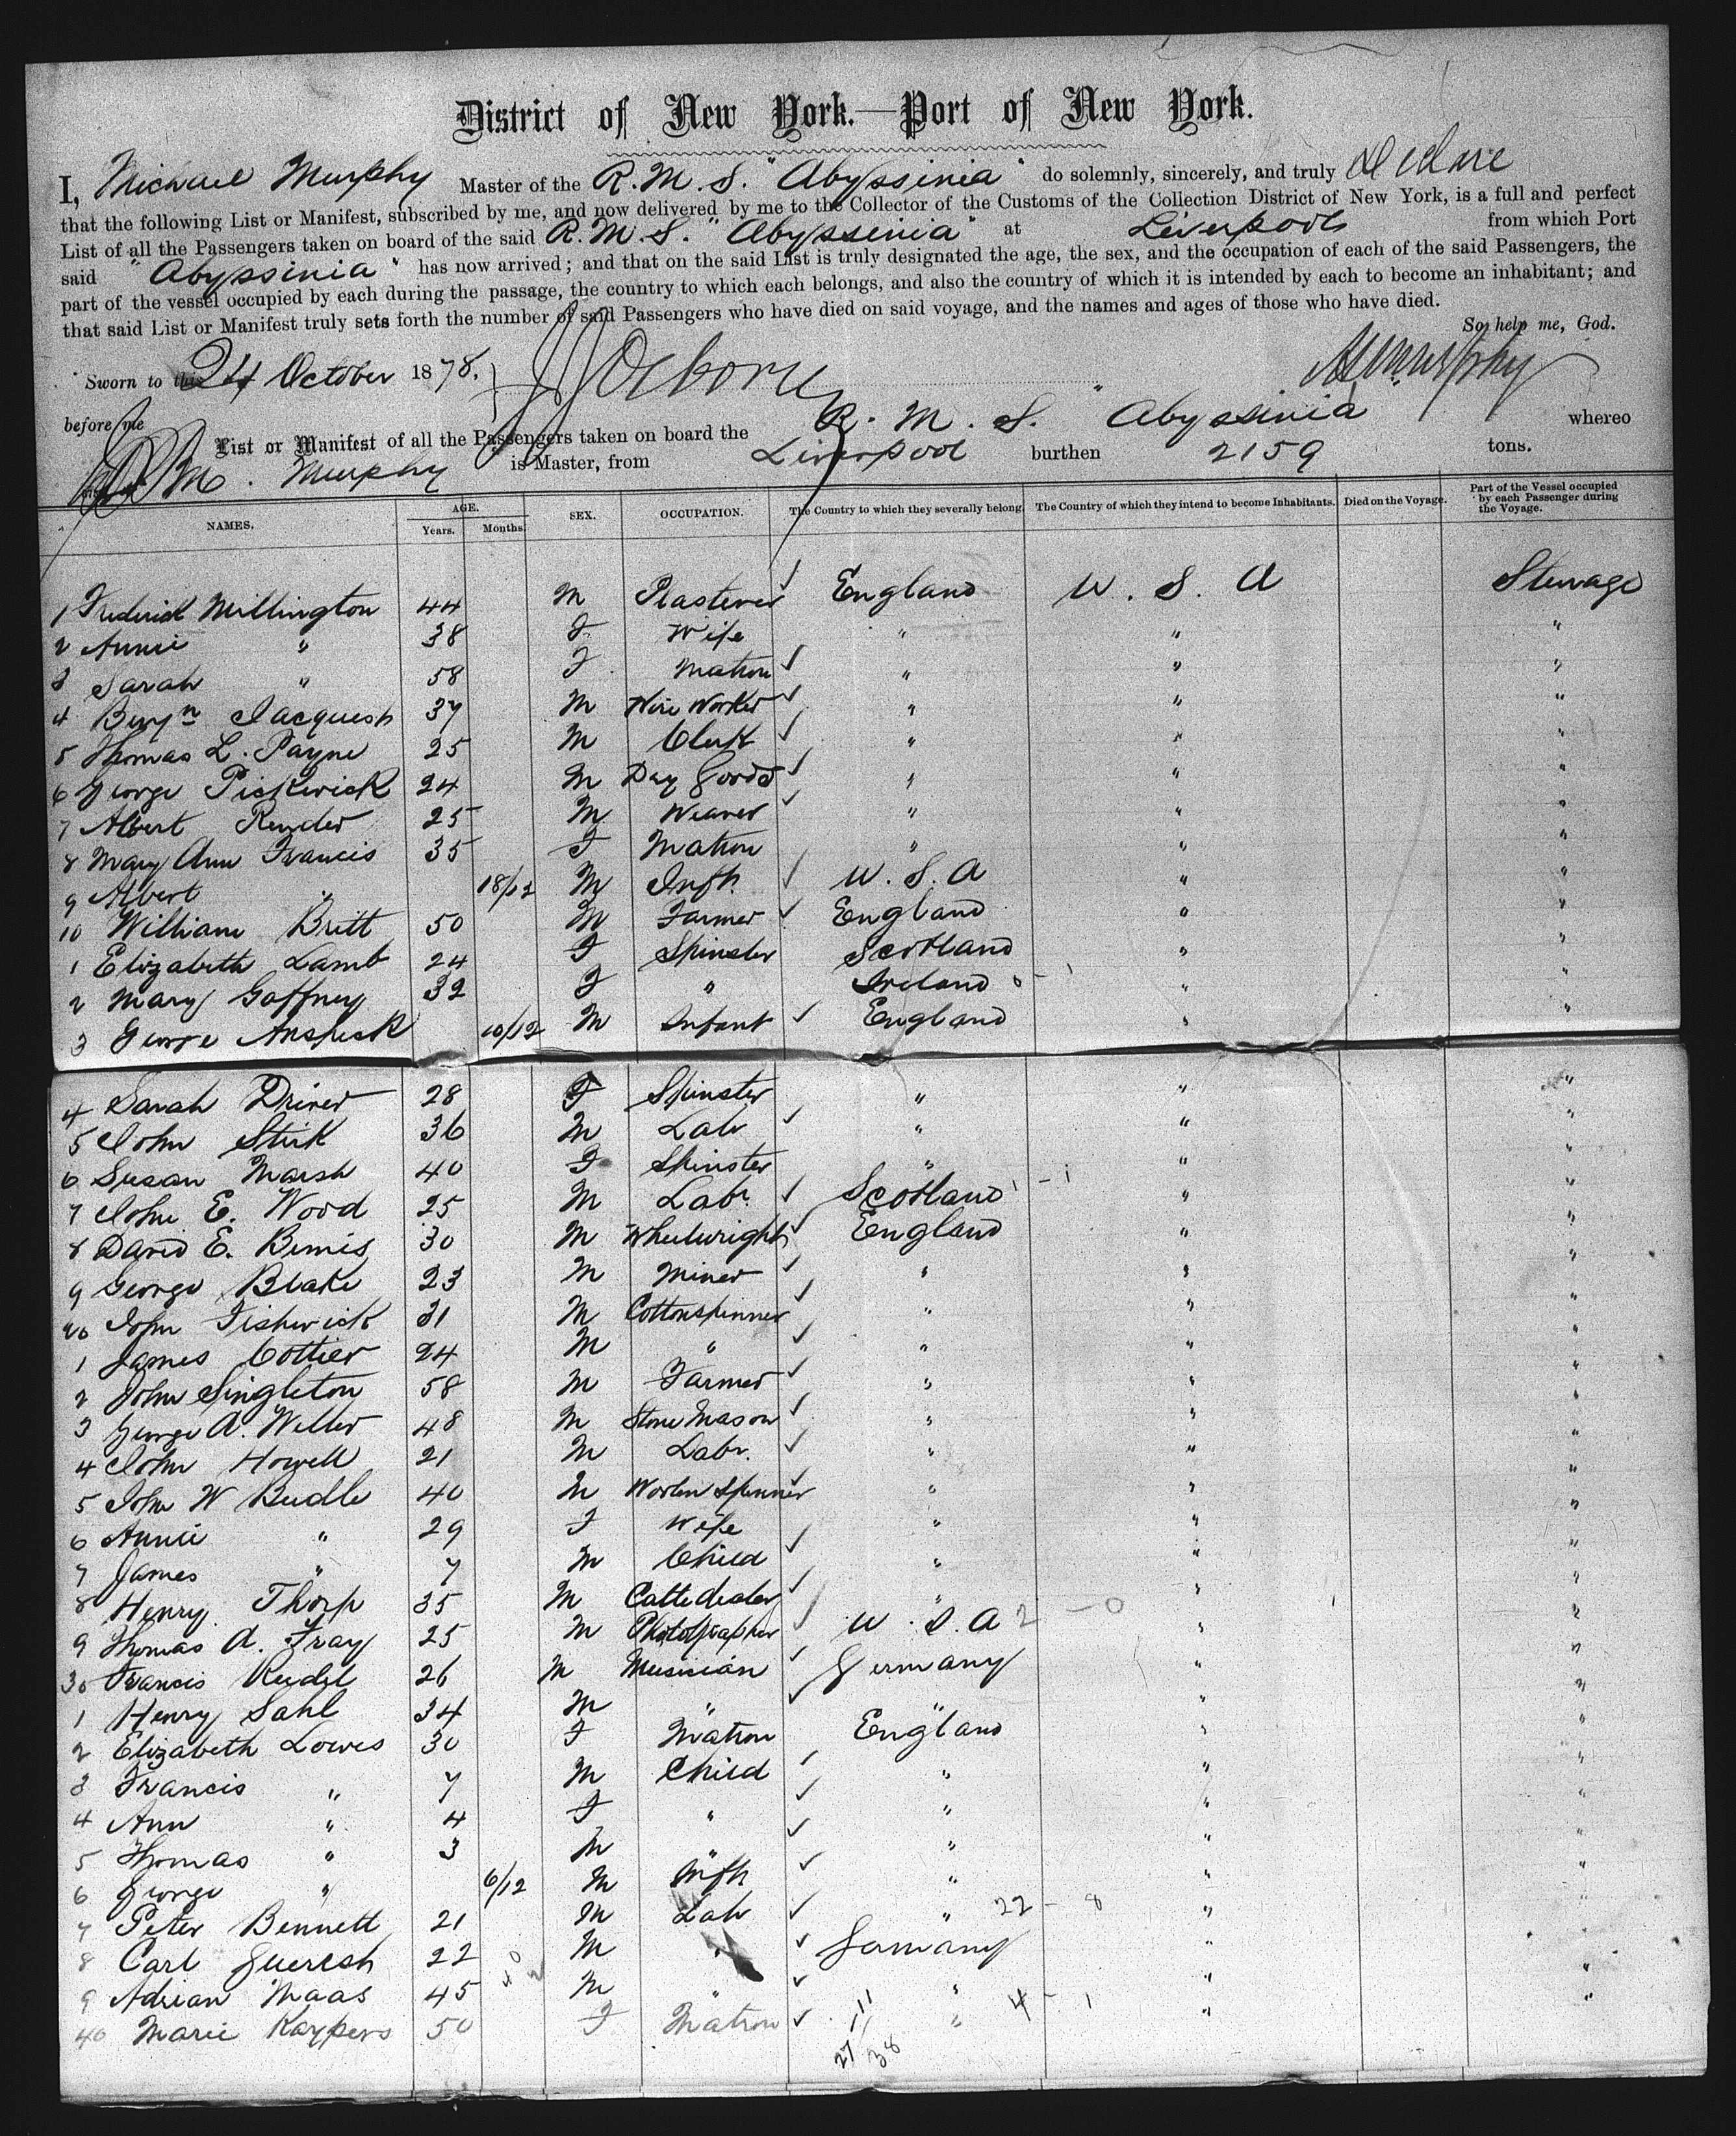 District of New York.—Port of New York.
I, Michael Murphy Master of the R.M.S. "Abyssinia" do solemnly, sincerely, and truly declare
that the following List or Manifest, subscribed by me, and now delivered by me to the Collector of the Customs of the Collection District of New York, is a full and perfect
List of all the Passengers taken on board of the said R.M.S. "Abyssinia" at Liverpool from which Port
said "Abyssinia" has now arrived; and that on the said List is truly designated the age, the sex, and the occupation of each of the said Passengers, the
part of the vessel occupied by each during the passage, the country to which each belongs, and also the country of which it is intended by each to become an inhabitant; and
that said List or Manifest truly sets forth the number of said Passengers who have died on said voyage, and the names and ages of those who have died.
So help me, God.
Sworn to this 24 October 1878. MMurphy
before me
List or Manifest of all the Passengers taken on board the R. M. S. "Abyssinia" whereo
M. Murphy is Master, from Liverpool burthen 2159 tons.
NAMES. AGE. Years. Months. SEX. OCCUPATION. The Country to which they severally belong. The Country of which they intend to become Inhabitants. Died on the Voyage. Part of the Vessel occupied by each Passenger during the Voyage.
1 Frederick Millington 44 M Plasterer ✓ England U. S. A Steerage
2 Annie " 38 F Wife " " "
3 Sarah " 58 F Matron ✓ " " "
4 Benjn Jacquesh 37 M Wire Worker ✓ " " "
5 Thomas L. Payne 25 M Clerk ✓ " " "
6 George Pickwick 24 M Dry Goods ✓ " " "
7 Albert Render 25 M Weaver ✓ " " "
8 Mary Ann Francis 35 F Matron " " "
9 Albert " 18/12 M Inft. ✓ U. S. A " "
10 William Britt 50 M Farmer ✓ England " "
1 Elizabeth Lamb 24 F Spinster Scotland " "
2 Mary Gaffney 32 F " Ireland 0 - 1 " "
3 George 10/12 M Infant ✓ England " "
4 Sarah Driver 28 F Spinster " " "
5 John Stirk 36 M Labr ✓ " " "
6 Susan Marsh 40 F Spinster " " "
7 John E. Wood 25 M Labr. ✓ Scotland 1 - 1 " "
8 David E. Bemis 30 M Wheelwright ✓ England " "
9 George Blake 23 M Miner ✓ " " "
20 John Fishwick 31 M Cottonspinner ✓ " " "
1 James Cottier 24 M " ✓ " " "
2 John Singleton 58 M Farmer ✓ " " "
3 George A. Weller 48 M Stone Mason ✓ " " "
4 John Howell 21 M Labr. ✓ " " "
5 John W Beedle 40 M Woolen Spinner ✓ " " "
6 Annie " 29 F Wife " " "
7 James " 7 M Child ✓ " " "
8 Henry Thorp 35 M Cattledealer ✓ " " "
9 Thomas A. Fray 25 M Photographer ✓ U. S. A 2 - 0 " "
30 Francis Riedel 26 M Musician ✓ Germany " "
1 Henry Sahl 34 M " ✓ " " "
2 Elizabeth Lowes 30 F Matron England " "
3 Francis " 7 M Child ✓ " " "
4 Ann " 4 F " ✓ " " "
5 Thomas " 3 M " ✓ " " "
6 George " 6/12 M Inft ✓ " " "
7 Peter Bennett 21 M Labr ✓ " 22 - 8 " "
8 Carl 22 M " ✓ Germany " "
9 Adrian Maas 45 M " ✓ " " "
40 Marie Kaypers 50 F Matron ✓ " 4 - 1 " "
11
27 38